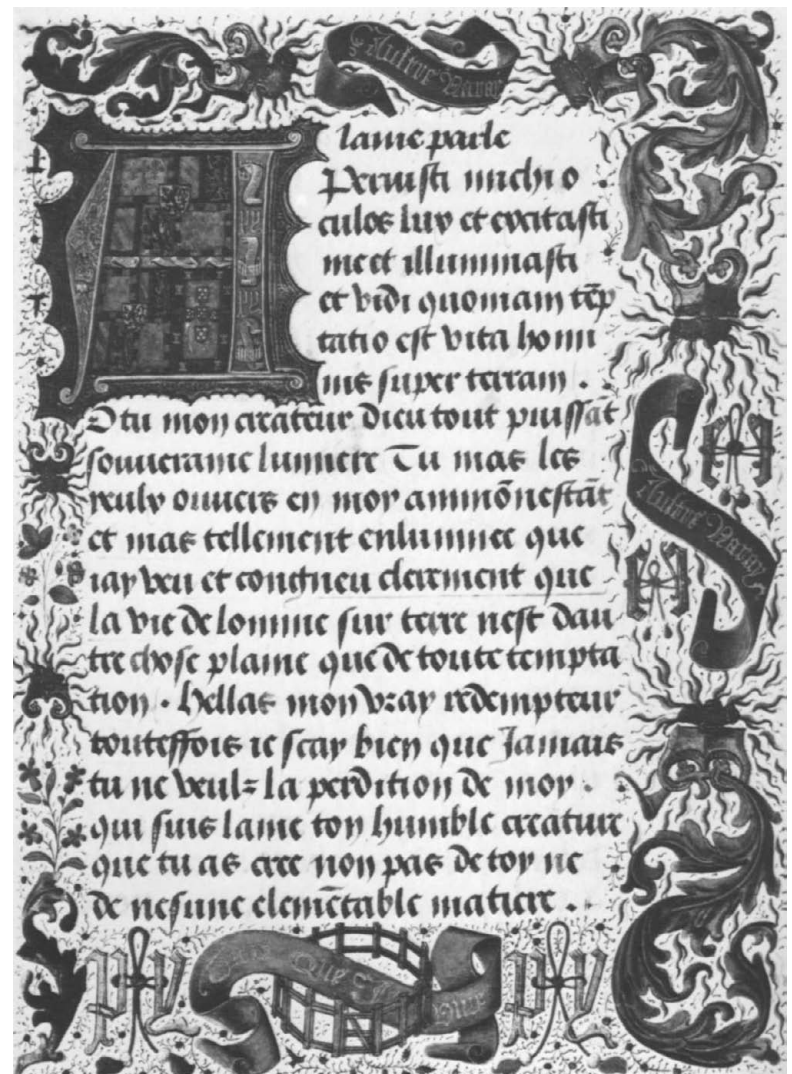 Aultre Naray
lame parle
Aperuisti michi o
culos lux et excitasti
me et illuminasti
et vidi quoniam tēp
tatio est vita homi
nis super terram .
O tu mon createur dieu tout puissāt
souueraine lumiere Tu mas les
yeulx ouuers en moy ammōnestāt
et mas tellement enluminee que
iay veu et congneu clerement que
la vie de lomme sur terre nest dau
tre chose plaine que de toute tempta
tion . hellas mon vray redempteur
touteffois ie scay bien que Jamais
tu ne veulz la perdition de moy .
qui suis lame ton humble creature
que tu as cree non pas de toy ne
de nesune elemētable matiere .
Aultre Naray